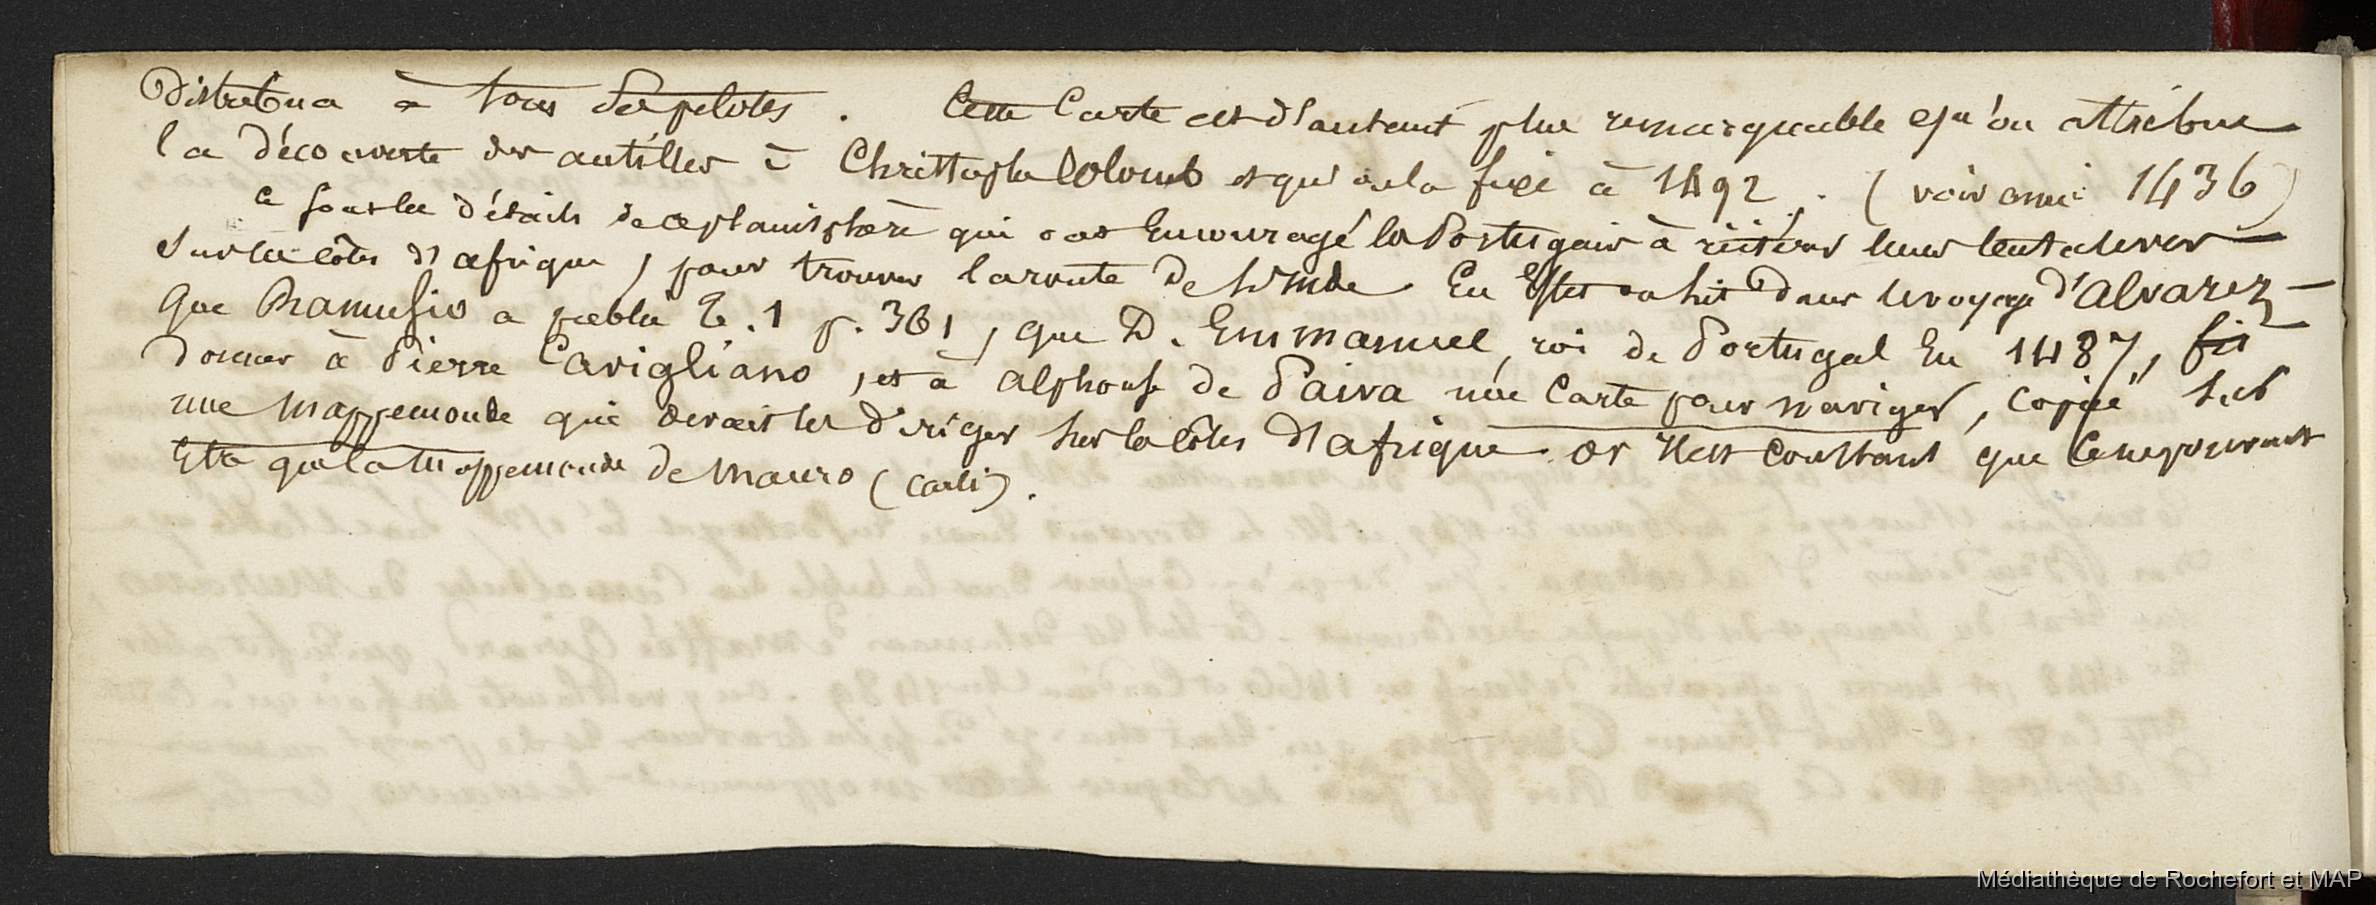 Distribua à tous ses pilotes. Cette Carte est d'autant plus remarquable qu'on attribue
la découverte des antilles à Christophe Colomb et qu'on la fixe à 1492. (voir année 1436)
Ce sont les détails de ce planisphère qui ont Encouragé les Portugais à réitérer leurs tentatives
sur les côtes d'afrique, pour trouver la route de l'inde. En Effet on lit Dans le voyage d'Alvarez
Que Ramusio a publié T. 1 p. 361, que D. Emmanuel, roi de Portugal En 1487, fit
donner à Pierre Cavigliano, et à Alphonse de Paiva une Carte pour naviger, copiée sur
une Mappemonde qui devait les diriger sur les côtes d'afrique. or il est constant que ce ne pouvait
Etre que la Mappemonde de Mauro (Carli).
Médiathèque de Rochefort et MAP